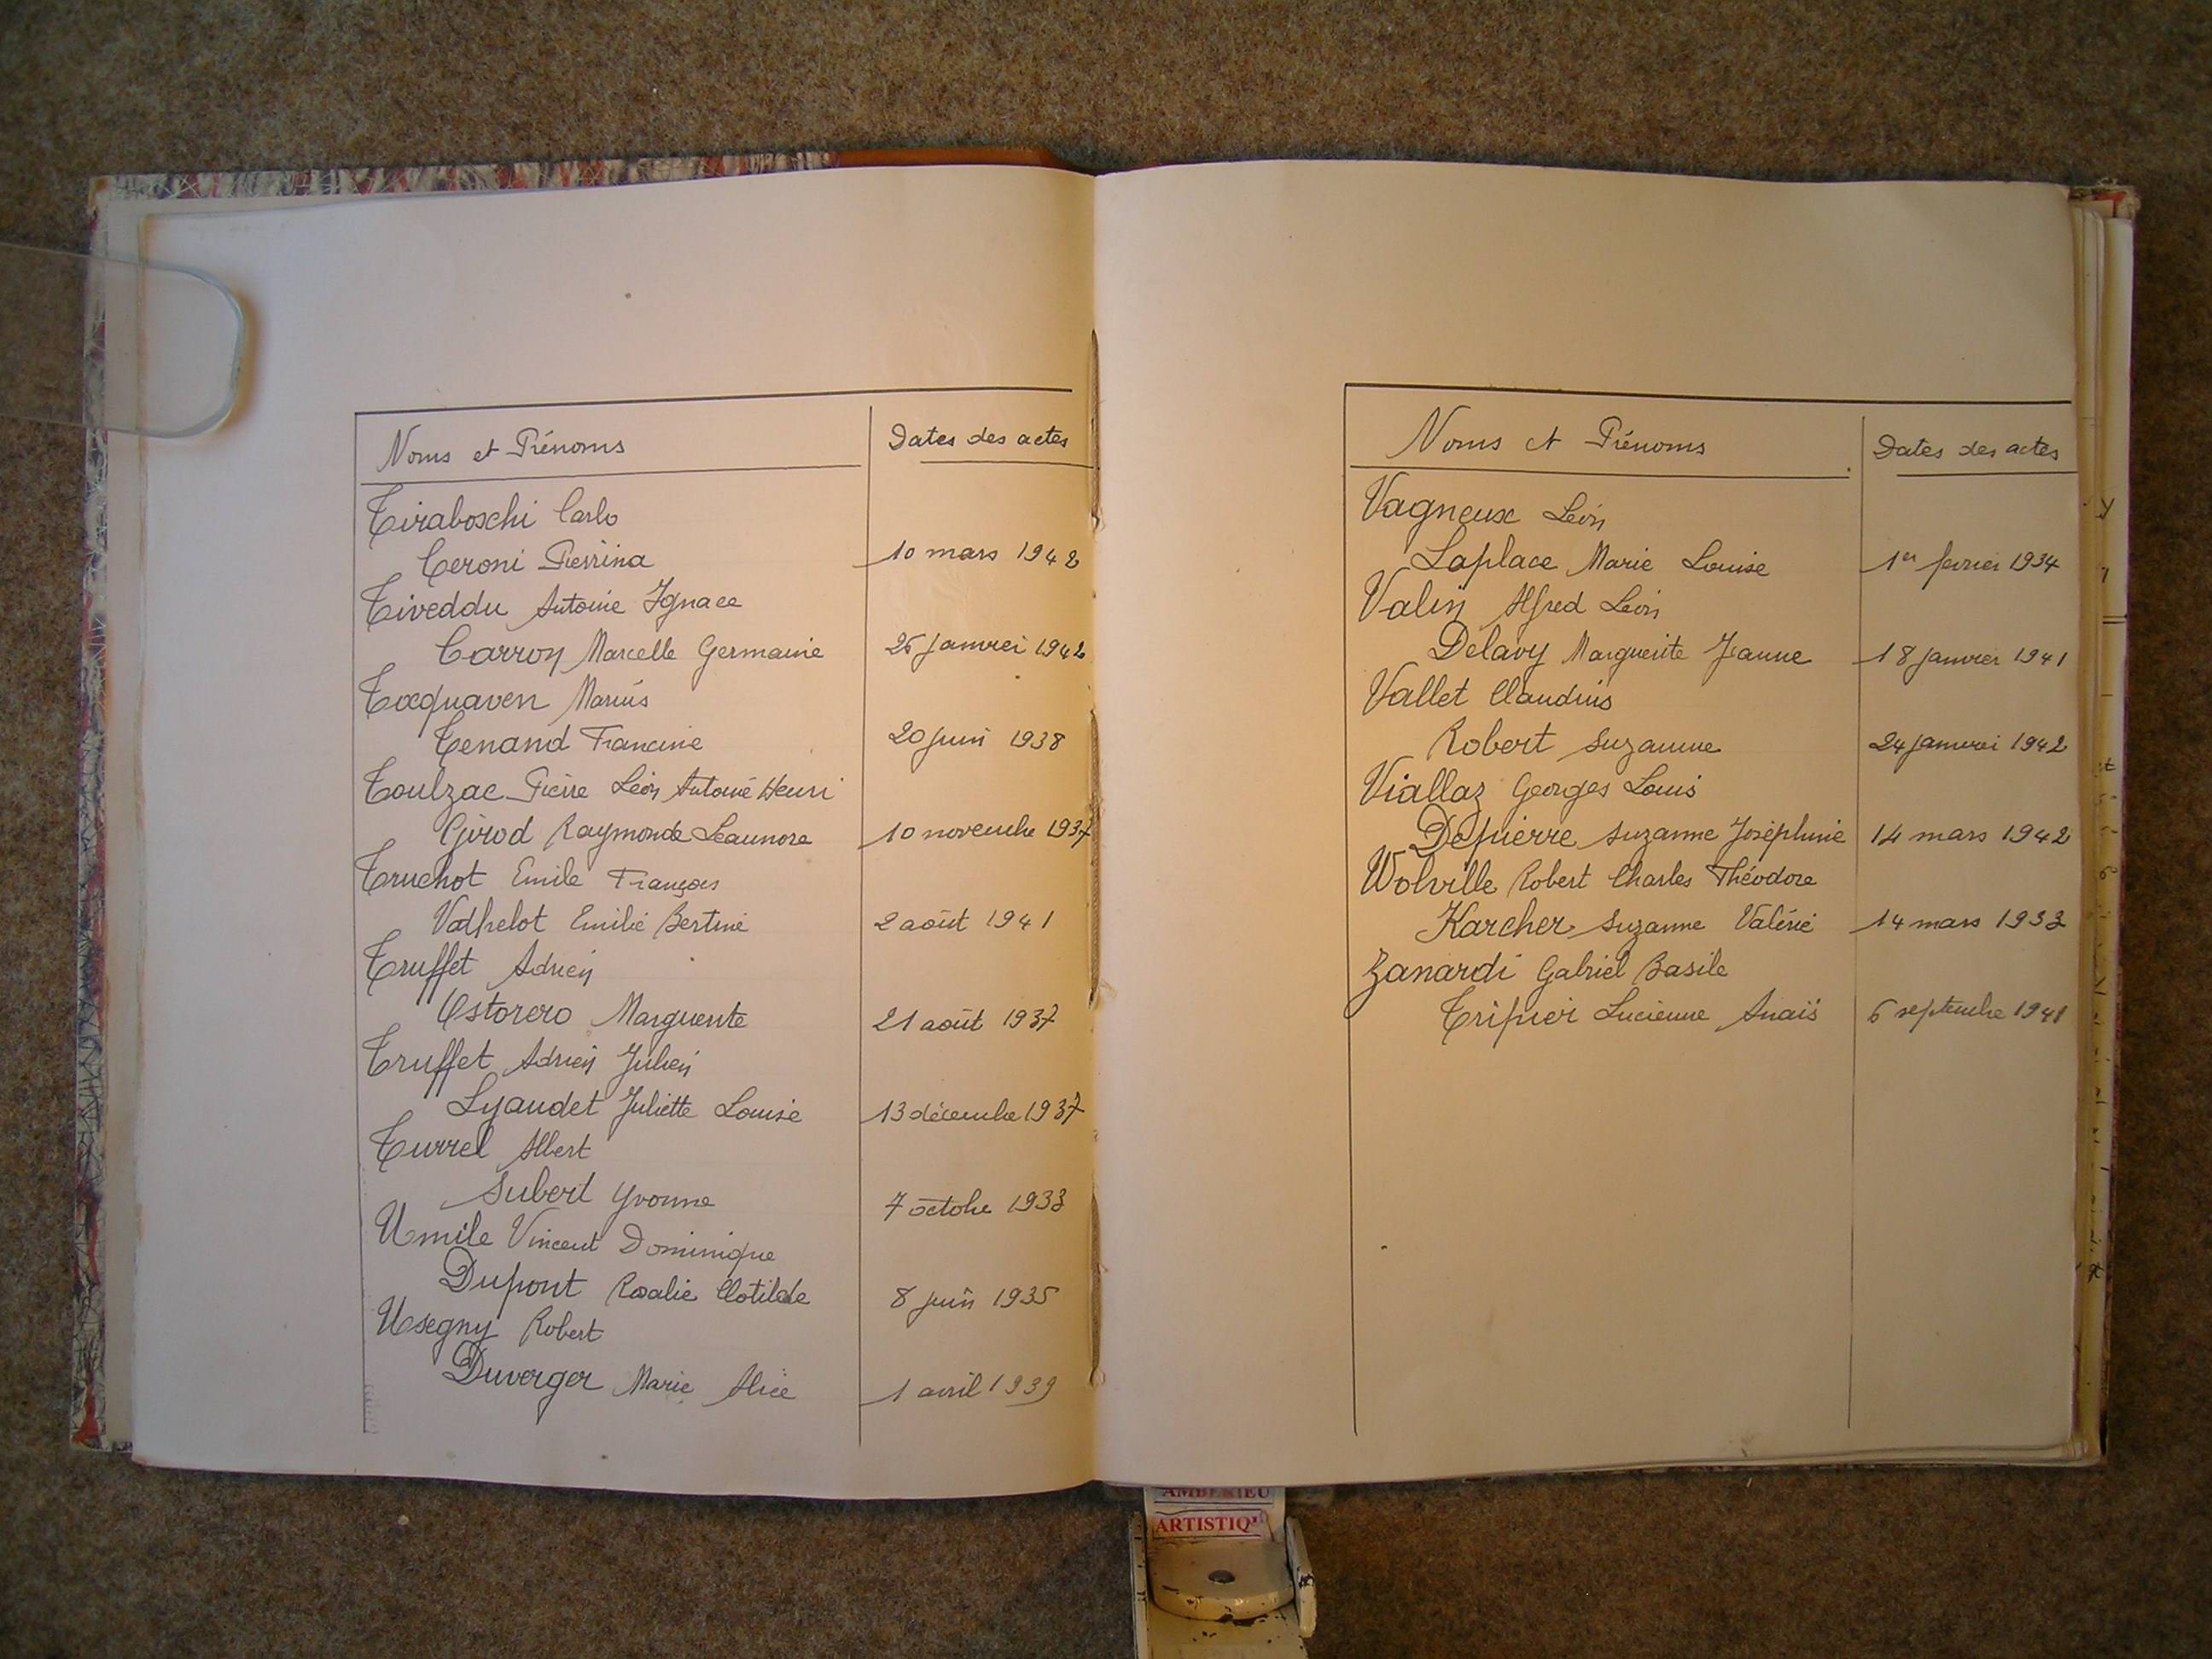 Noms et Prénoms Dates des actes
Tiraboschi Carlo
Ceroni Pierrina 10 mars 1942
Tiveddu Antoine Ignace
Carron Marcelle Germaine 26 janvier 1942
Tocquaven Marius
Tenand Francine 20 juin 1938
Toulzac Pierre Léon Antoine Henri
Girod Raymonde Leaunore 10 novembre 1937
Truchot Emile François
Vadhelot Emilie Bertine 2 août 1941
Truffet Adrien
Ostorero Marguerite 21 août 1937
Truffet Adrien Julien
Lyaudet Juliette Louise 13 décembre 1937
Turrel Albert
Subert Yvonne 7 octobre 1933
Umile Vincent Dominique
Dupont Rosalie Clotilde 8 juin 1935
Usegny Robert
Duverger Marie Alice 1 avril 1939
Noms et Prénoms Dates des actes
Vagneux Léon
Laplace Marie Louise 1er fevrier 1934
Valin Alfred Léon
Delavy Marguerite Jeanne 18 janvier 1941
Vallet Claudius
Robert Suzanne 24 janvier 1942
Viallaz Georges Louis
Depierre Suzanne Joséphine 14 mars 1942
Wolville Robert Charles Théodore
Karcher Suzanne Valérie 14 mars 1933
Zanardi Gabriel Basile
Tripier Lucienne Anaïs 6 septembre 1941
AMBERIEU
ARTISTIQ